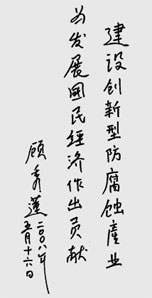 建设创新型防腐蚀產业
为发展国民经济作出贡献
顾秀莲
二〇〇八年
五月十六日